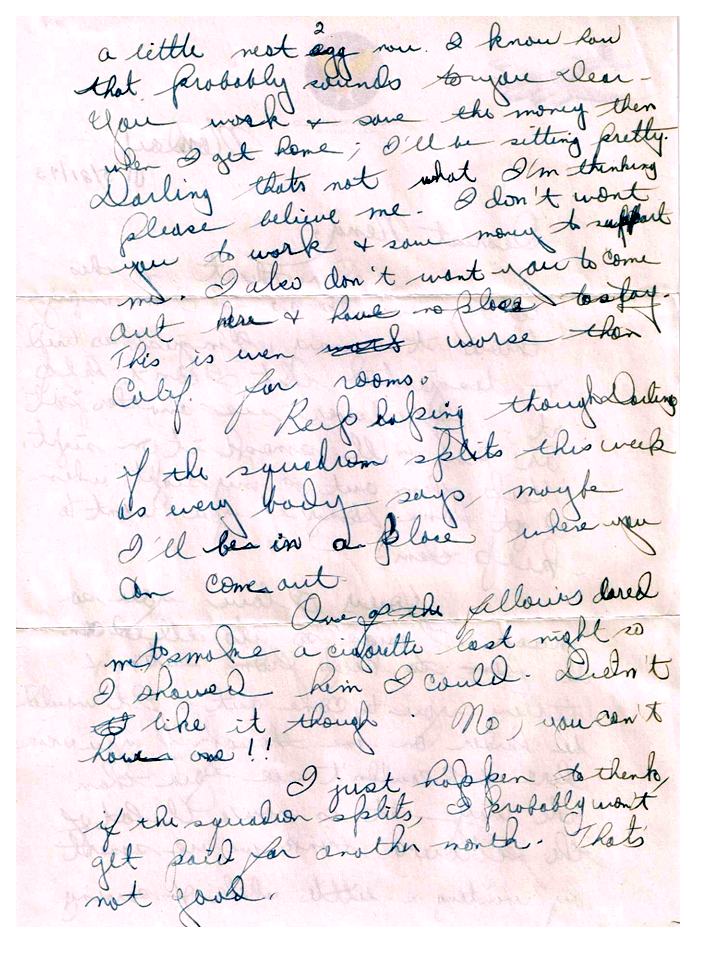 2
a little nest egg now. I know how
that probably sounds to you Dear -
You work & save the money then
when I get home; I'll be sitting pretty.
Darling thats not what I'm thinking
please believe me. I don't want
you to work & save money to support
me. I also don't want you to come
out here & have no place to stay.
This is even worse than
Calif. for rooms.
Keep hoping though Darling
if the squadron splits this week
as every body says, maybe
I'll be in a place where you
can come out
One of the fellows dared
me to smoke a cigarette last night so
I showed him I could. Didn't
like it though. No, you can't
have one!!
I just happen to think,
if the squadron splits, I probably won't
get paid for another month. That's
not good.